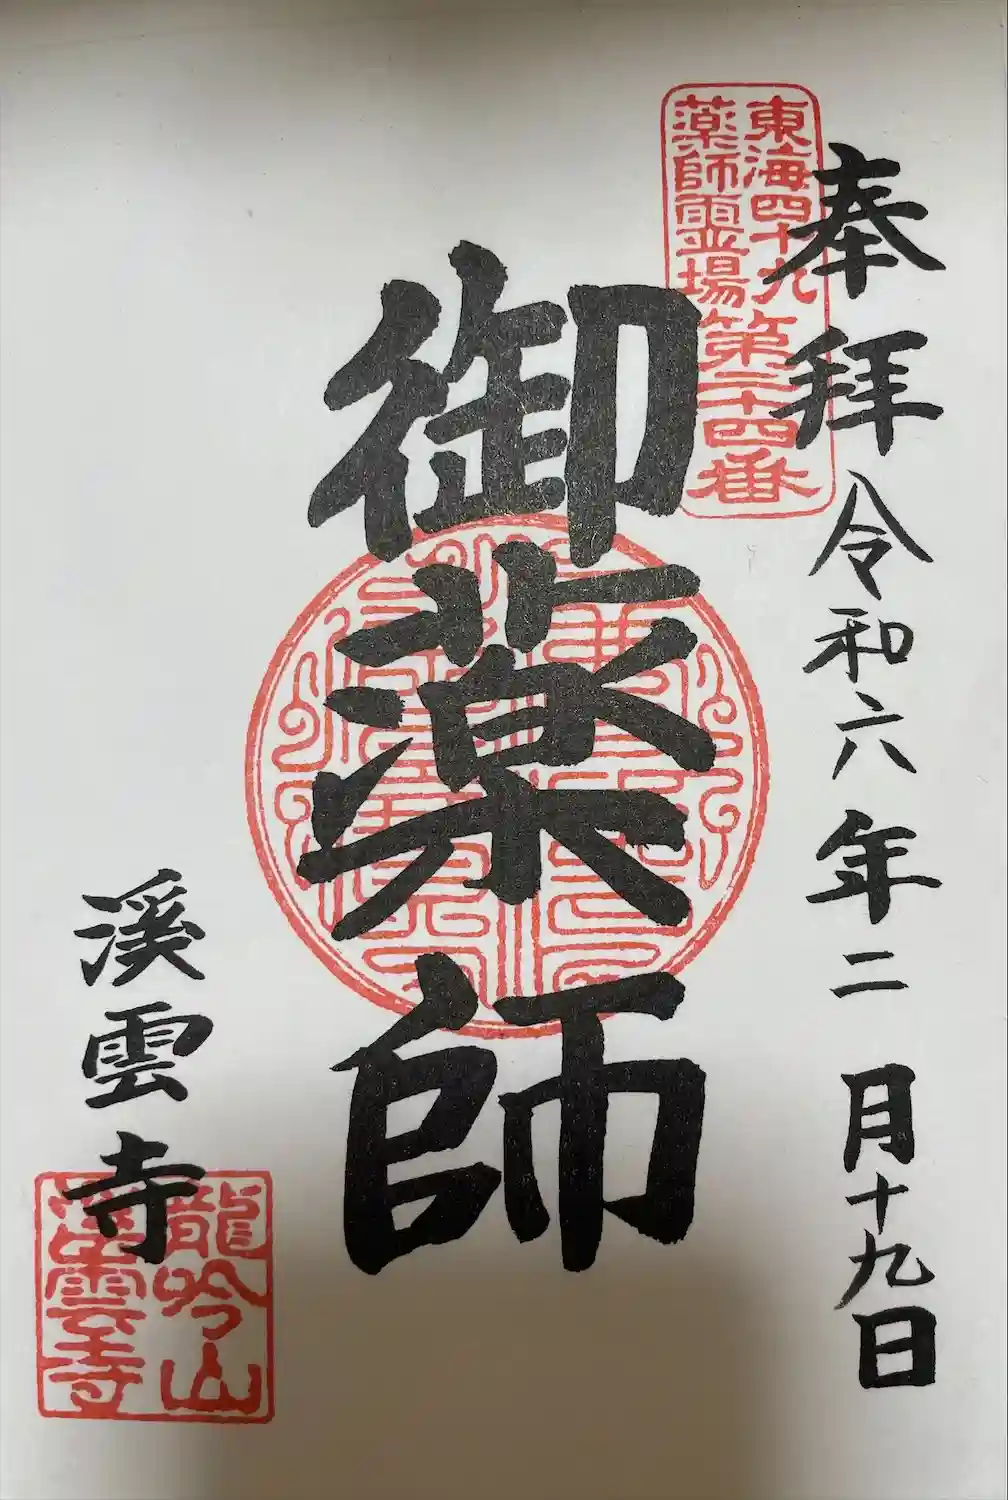 奉拝 令和六年二月十九日
東海四十九
薬師霊場
第二十四番
御薬師
溪雲寺
龍吟山
溪雲寺